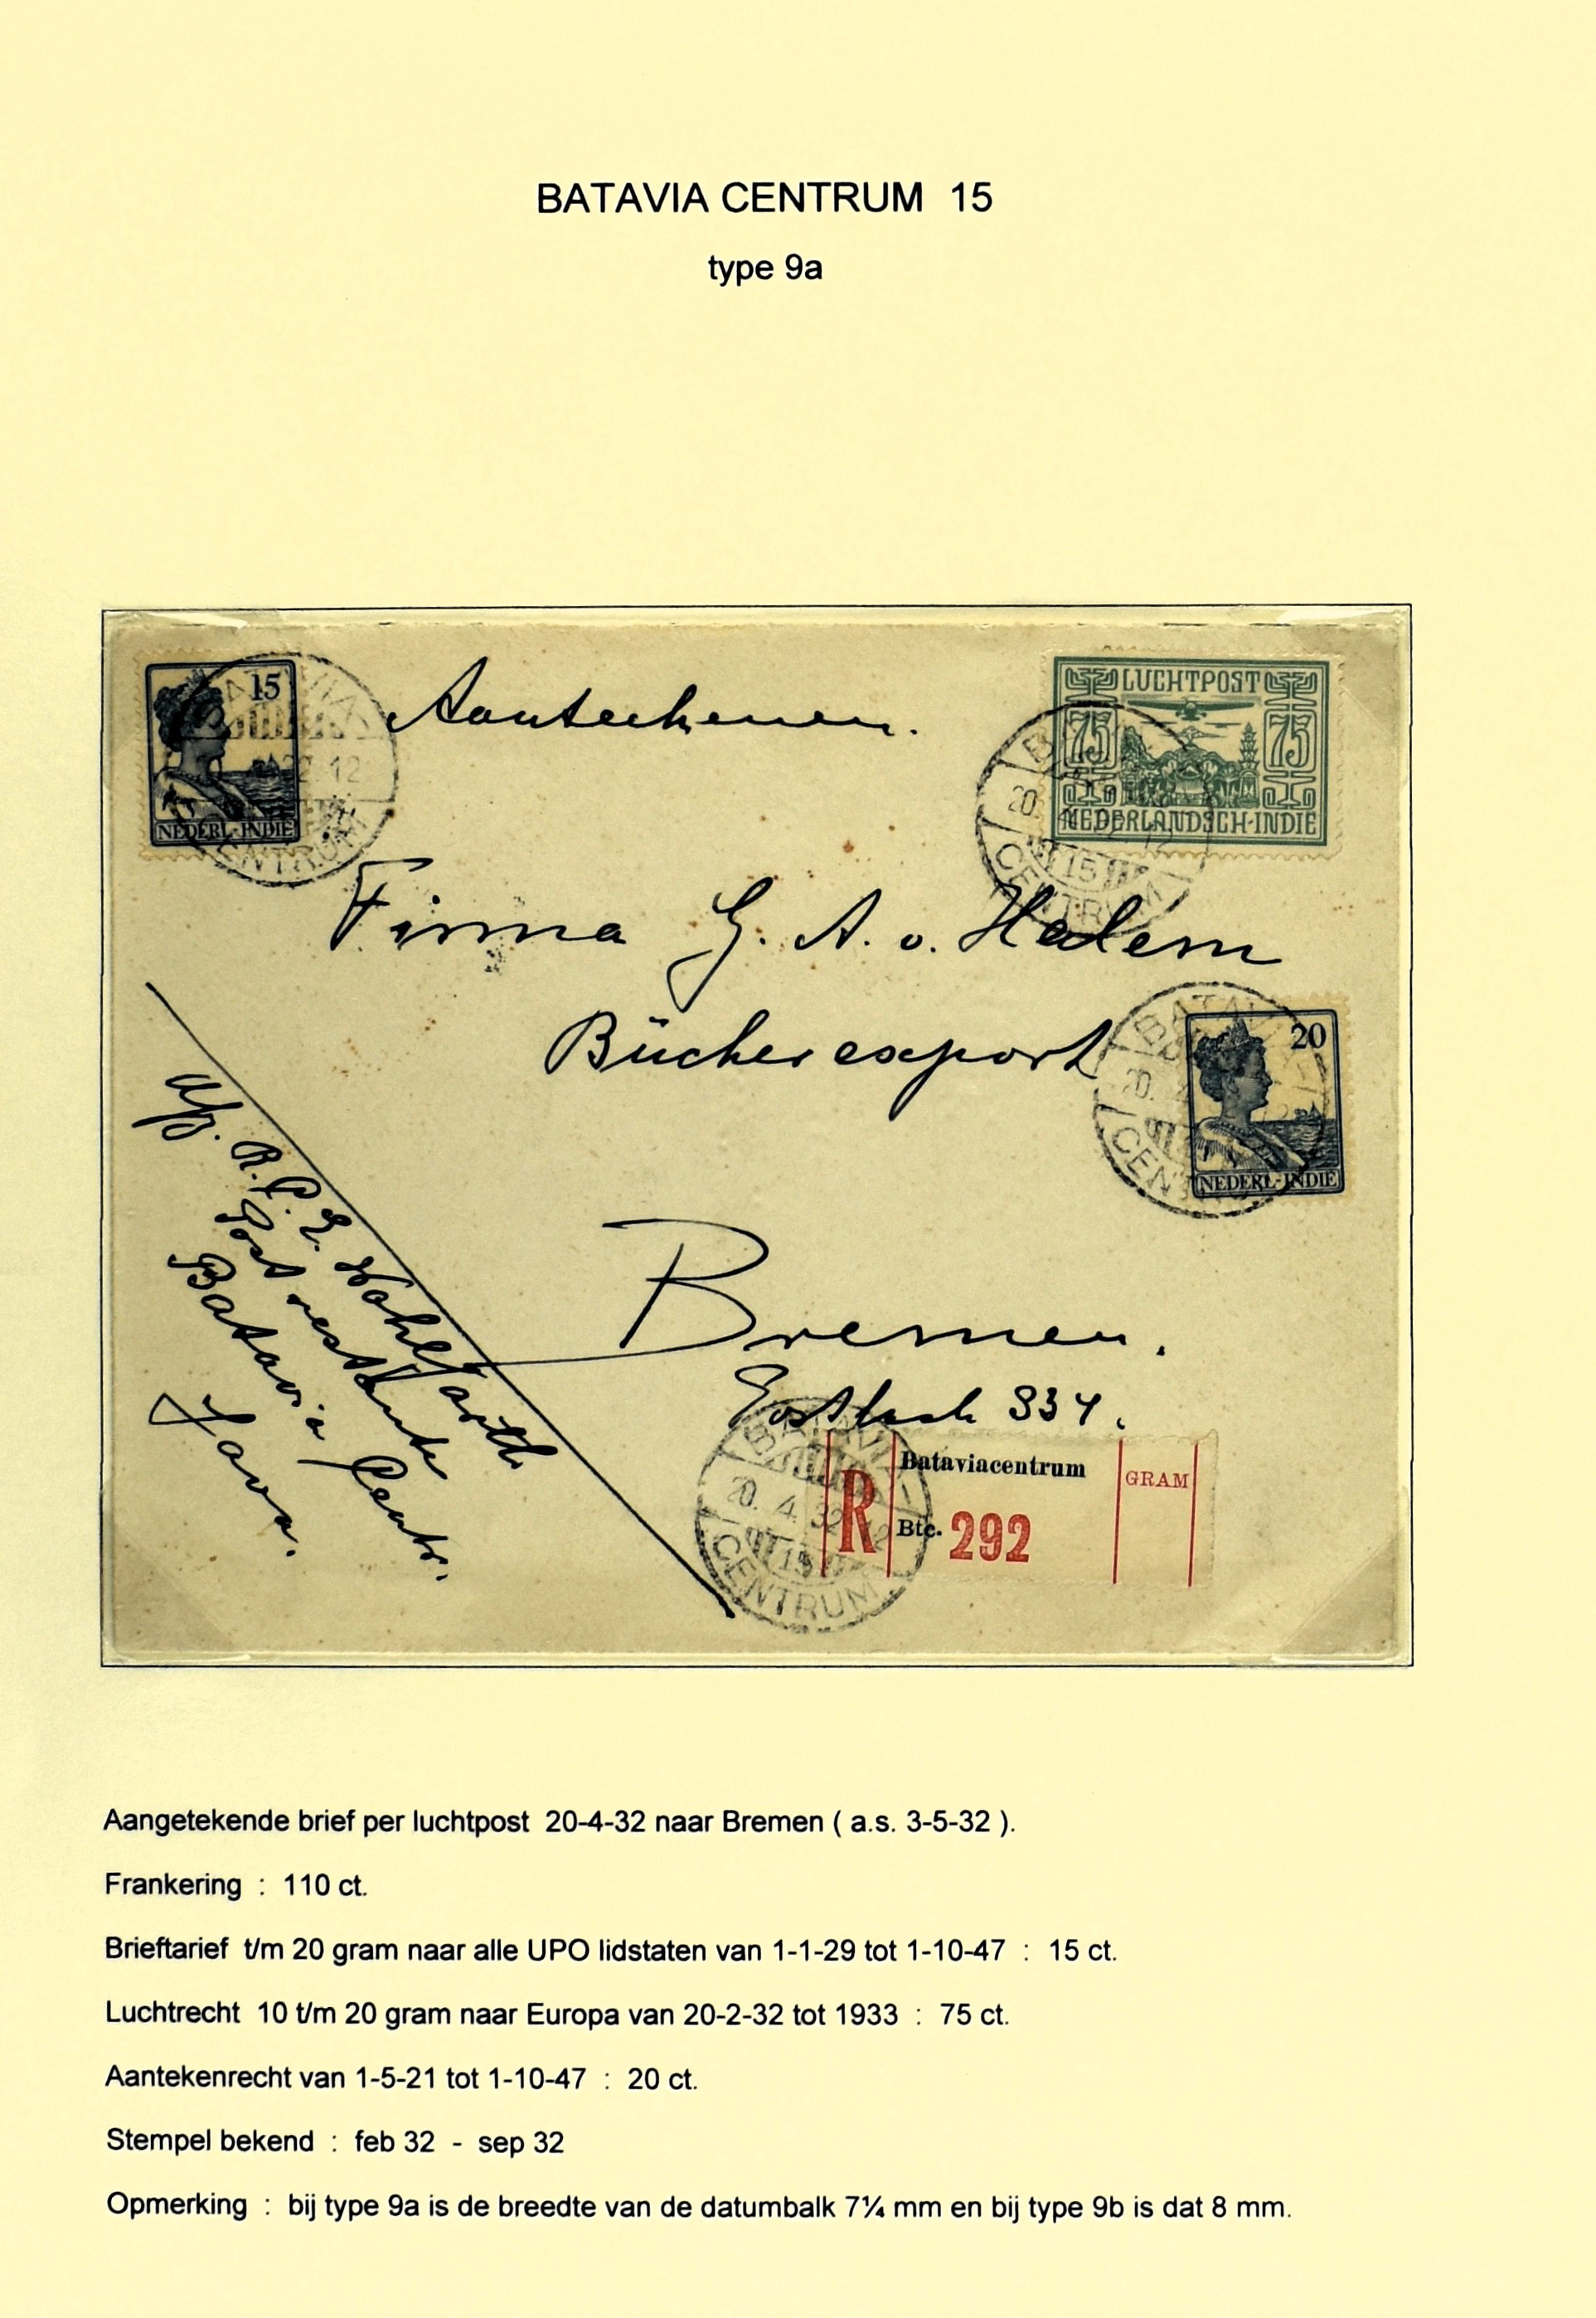 BATAVIA CENTRUM 15
type 9a
15
NEDERL-INDIE
Aanteekenen.
LUCHTPOST
75 75
NEDERLANDSCH-INDIE
BATAVIA-
20. 4. 32. 12
15
CENTRUM
Firma G. A. v. Halem
Bücherexport
20
NEDERL-INDIE
Bremen.
Postfach 334.
Afz. R. P. E. Wohlfarth
Post restante
Batavia Centr.
Java.
BATAVIA-
20. 4. 32. 12
15
CENTRUM
R
Bataviacentrum
Btc. 292
GRAM
Aangetekende brief per luchtpost 20-4-32 naar Bremen ( a.s. 3-5-32 ).
Frankering : 110 ct.
Brieftarief t/m 20 gram naar alle UPO lidstaten van 1-1-29 tot 1-10-47 : 15 ct.
Luchtrecht 10 t/m 20 gram naar Europa van 20-2-32 tot 1933 : 75 ct.
Aantekenrecht van 1-5-21 tot 1-10-47 : 20 ct.
Stempel bekend : feb 32 - sep 32
Opmerking : bij type 9a is de breedte van de datumbalk 7¼ mm en bij type 9b is dat 8 mm.